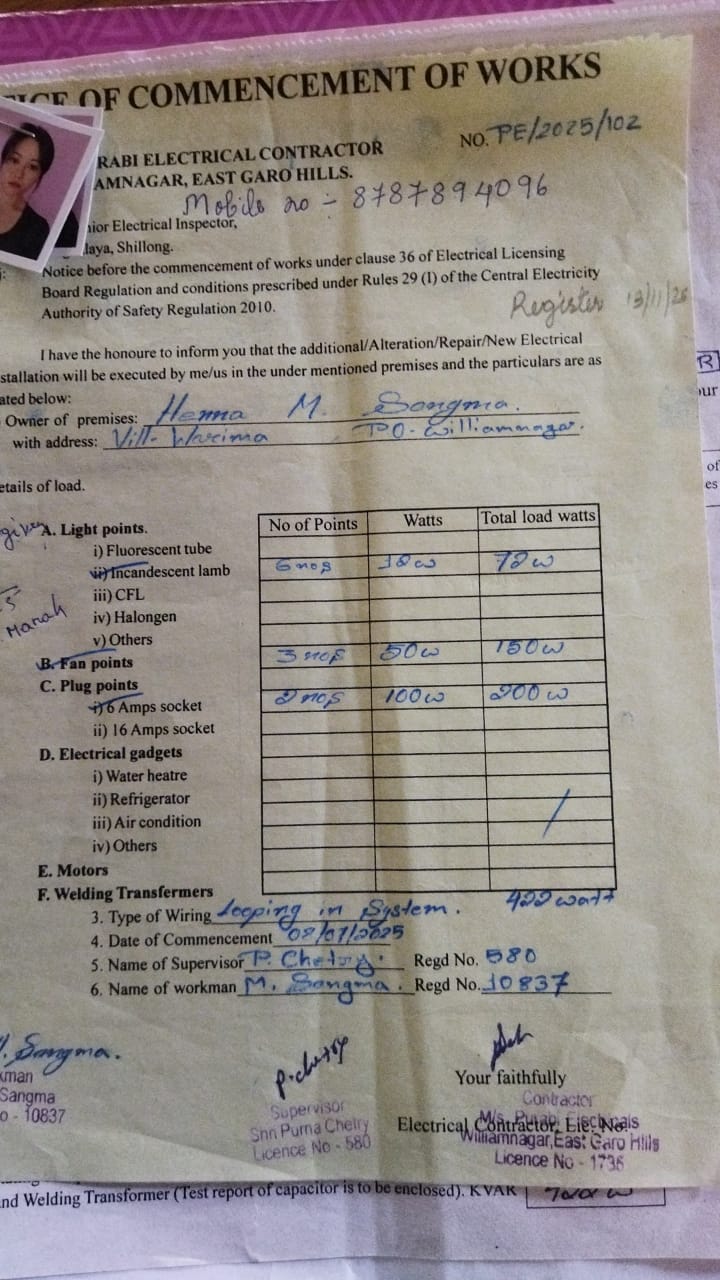 OF COMMENCEMENT OF WORKS
NO. PE/2025/102
RABI ELECTRICAL CONTRACTOR
AMNAGAR, EAST GARO HILLS.
Mobile no :- 8787894096
nior Electrical Inspector,
laya, Shillong.
Notice before the commencement of works under clause 36 of Electrical Licensing
Board Regulation and conditions prescribed under Rules 29 (I) of the Central Electricity
Authority of Safety Regulation 2010.
Register 13/11/25
I have the honoure to inform you that the additional/Alteration/Repair/New Electrical
stallation will be executed by me/us in the under mentioned premises and the particulars are as
ated below:
Owner of premises: Henna M. Sangma.
with address: Vill- Warima PO- Williamnagar.
etails of load.
No of Points Watts Total load watts
A. Light points.
i) Fluorescent tube
ii) Incandescent lamb 6 nos 12w 72w
iii) CFL
iv) Halongen
v) Others
B. Fan points 3 nos 50w 150w
C. Plug points
i) 6 Amps socket 2 nos 100w 200w
ii) 16 Amps socket
D. Electrical gadgets
i) Water heatre
ii) Refrigerator
iii) Air condition
iv) Others
E. Motors
F. Welding Transfermers
422 watt
3. Type of Wiring Looping in System.
4. Date of Commencement 02/07/2025
5. Name of Supervisor P. Chetry. Regd No. 580
6. Name of workman M. Sangma. Regd No. 10837
Sangma.
kman
Sangma
o - 10837
P. chetry
Supervisor
Shri Purna Chetry
Licence No - 580
Your faithfully
Contractor
Electrical Contractor, Lie. No.
Williamnagar, East Garo Hills
Licence No - 1736
nd Welding Transformer (Test report of capacitor is to be enclosed). KVAR